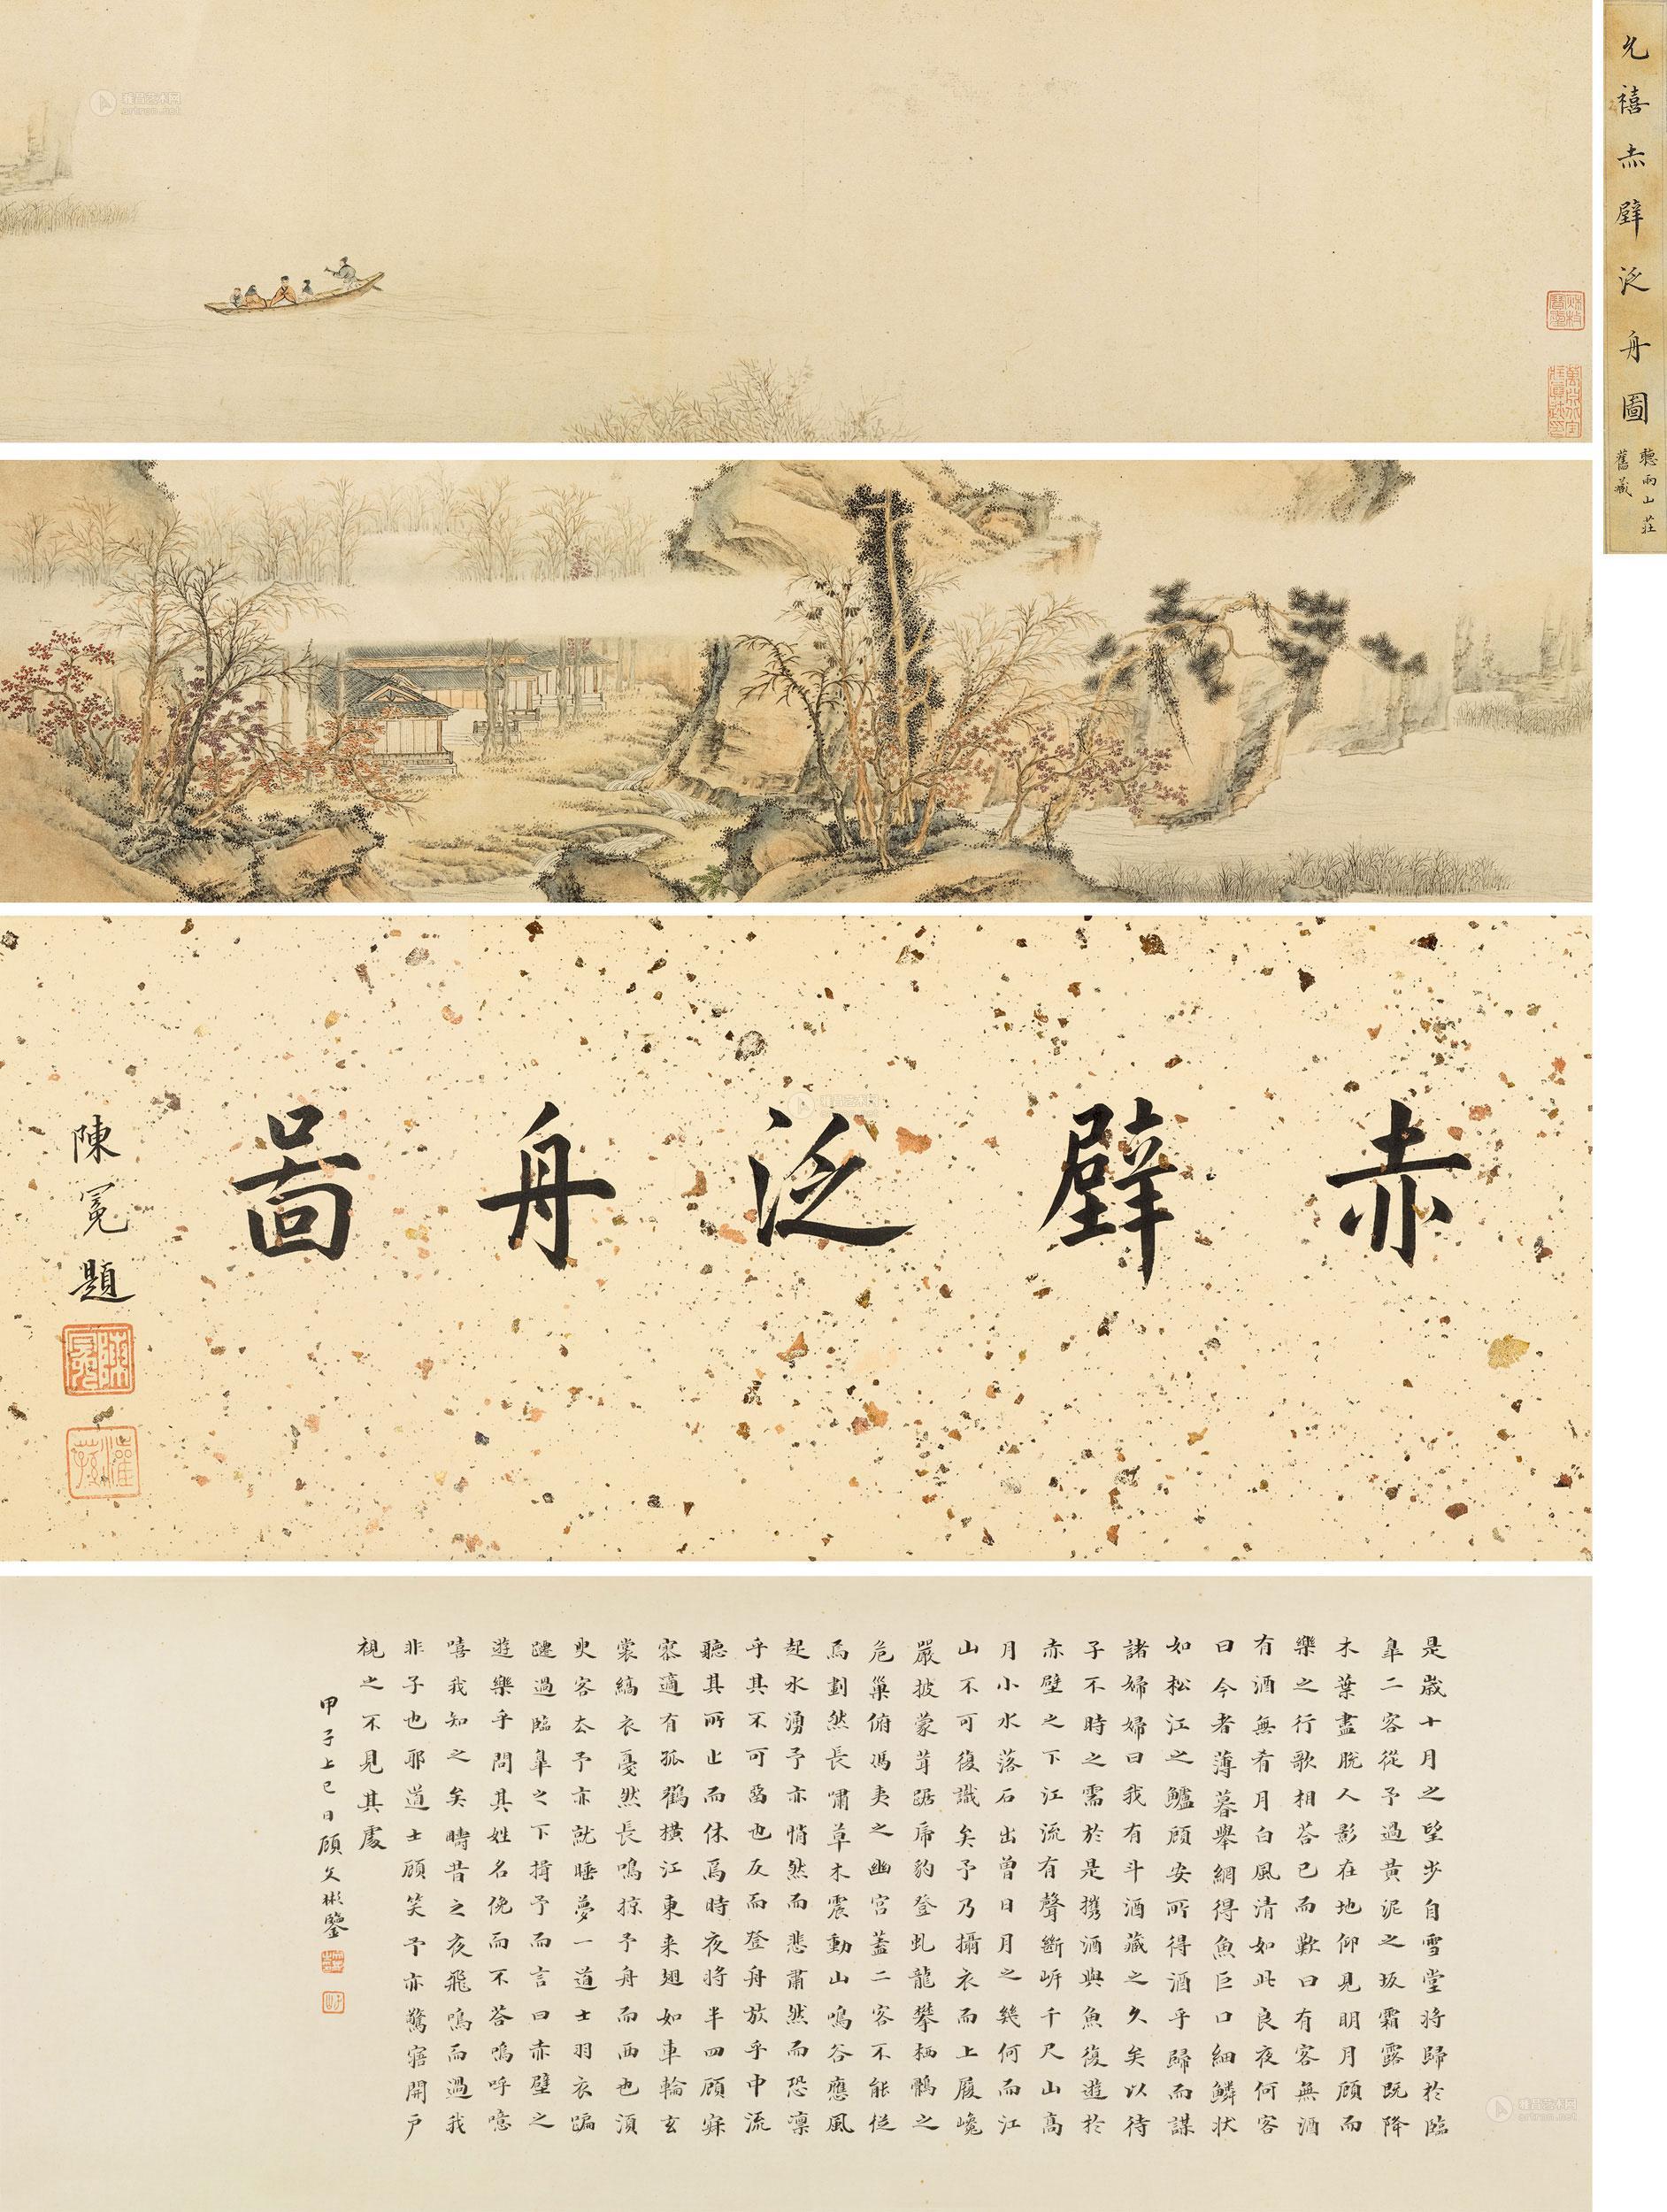 允禧赤壁泛舟圖
聽雨山莊
舊藏
赤壁泛舟啚
陳冕題
是歲十月之望步自雪堂將歸於臨
臯二客從予過黃泥之坂霜露既降
木葉盡脫人影在地仰見明月顧而
樂之行歌相答已而歎曰有客無酒
有酒無肴月白風清如此良夜何客
曰今者薄暮舉網得魚巨口細鱗狀
如松江之鱸顧安所得酒乎歸而謀
諸婦婦曰我有斗酒藏之久矣以待
子不時之需於是攜酒與魚復遊於
赤壁之下江流有聲斷岸千尺山高
月小水落石出曾日月之幾何而江
山不可復識矣予乃攝衣而上履巉
巖披蒙茸踞虎豹登虬龍攀栖鶻之
危巢俯馮夷之幽宮蓋二客不能從
焉劃然長嘯草木震動山鳴谷應風
起水湧予亦悄然而悲肅然而恐凜
乎其不可留也反而登舟放乎中流
聽其所止而休焉時夜將半四顧寂
寥適有孤鶴橫江東來翅如車輪玄
裳縞衣戛然長鳴掠予舟而西也須
臾客去予亦就睡夢一道士羽衣蹁
躚過臨臯之下揖予而言曰赤壁之
遊樂乎問其姓名俛而不答嗚呼噫
嘻我知之矣疇昔之夜飛鳴而過我
非子也耶道士顧笑予亦驚寤開戶
視之不見其處
甲子上巳日顧文彬鑒